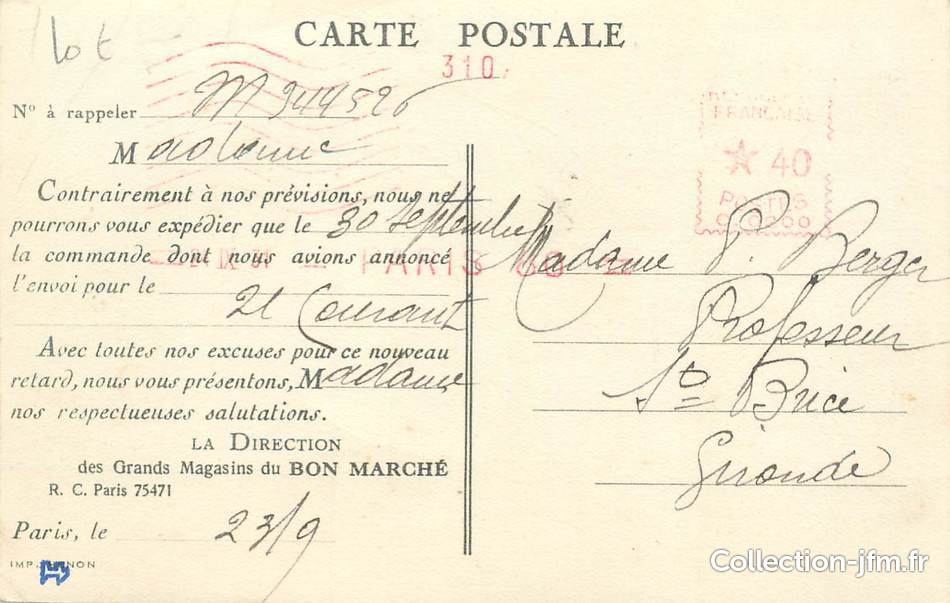 lot
CARTE POSTALE
310
N° à rappeler M 944526
Madame
Contrairement à nos prévisions, nous ne
pourrons vous expédier que le 30 Septembre
la commande dont nous avions annoncé
l'envoi pour le
21 Courant
Avec toutes nos excuses pour ce nouveau
retard, nous vous présentons, Madame,
nos respectueuses salutations.
LA DIRECTION
des Grands Magasins du BON MARCHÉ
R. C. Paris 75471
Paris, le 23/9
IMP.
FRANÇAISE
★ 40
POSTES
PARIS
Madame P. Berger
Professeur
St Brice
Gironde
Collection-jfm.fr